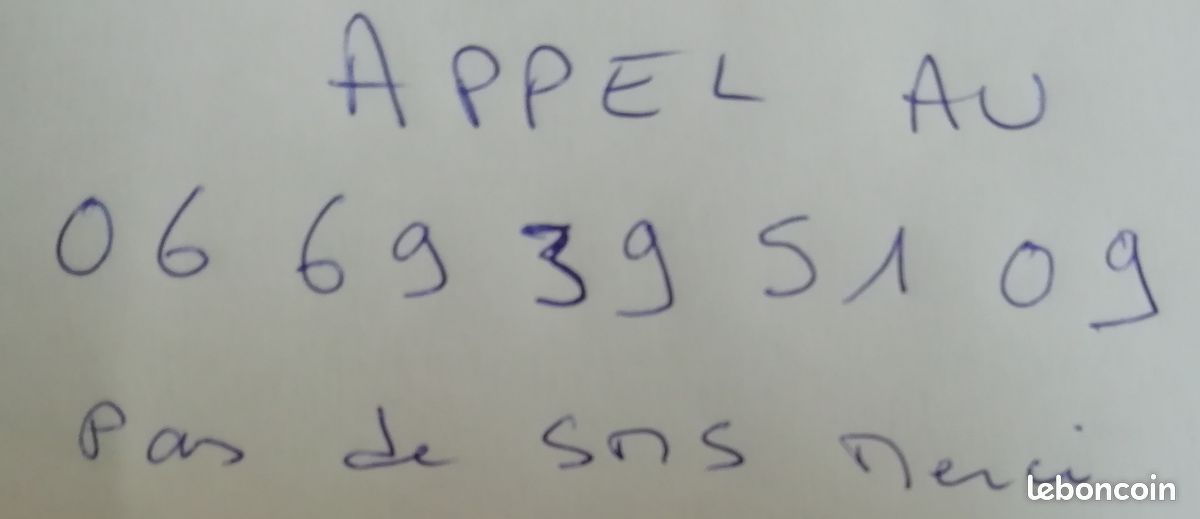 APPEL AU
06 69 39 51 09
Pas de SMS Merci
leboncoin